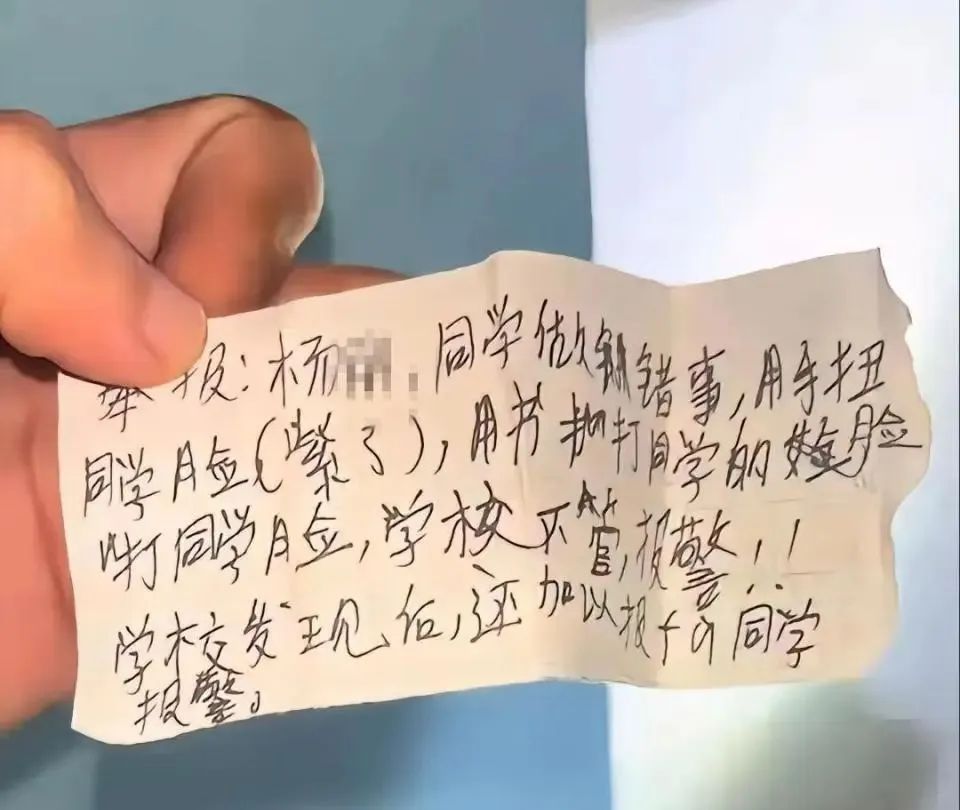 举报:杨 同学做错事,用手扭
同学脸(紫了),用书打同学的脸
啪打同学脸,学校不管,报警!!
学校发现后,还加以报 同学
报警。